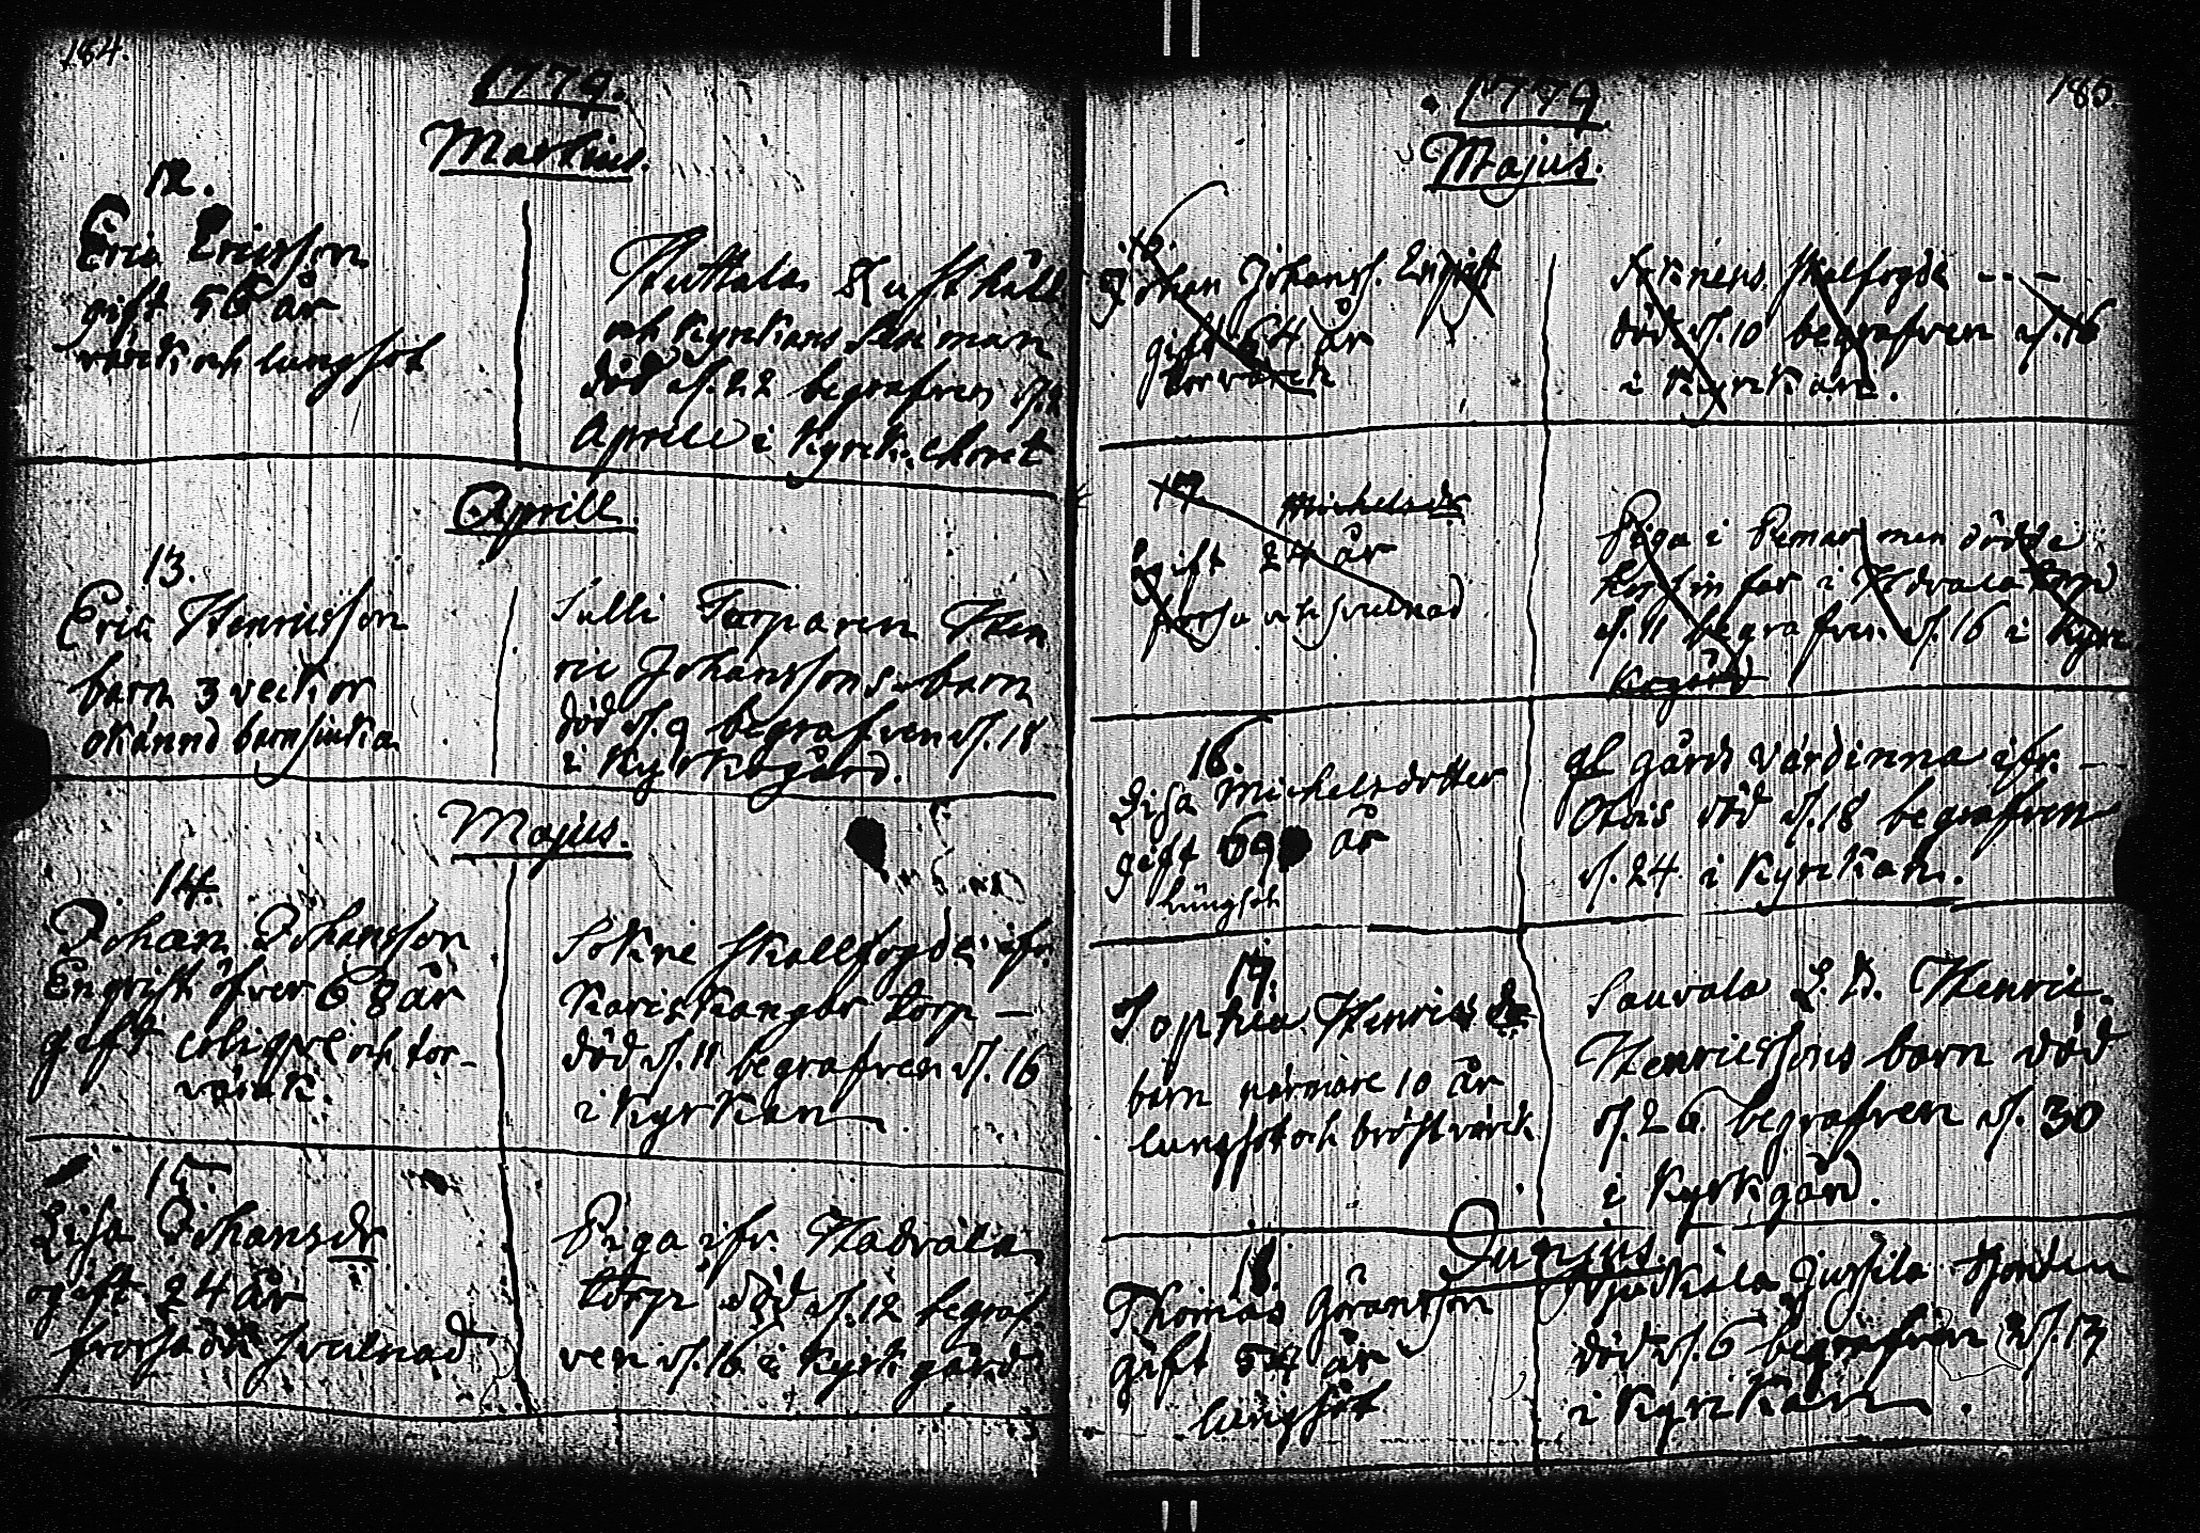 184.
1779.
Martius.
12.
Eric Ericsson
gift 56 år
värck och lungsot
Rusthåll
och Kyrkians
död d. 22 begrafven d. 2
Aprill i Kyrk. Choret
Aprill.
13.
Eric Henricsson
barn 3 veckor
okännd barnsiuka
Torparen Hen
ric Johanssons barn
död d. 9 begrafven d. 18
i Kyrkogård.
Majus.
14.
Johan Johansson
Enqvist öfver 68 år
gift och tor-
värck.
Sokne skallfogde ifr.
torp —
död d. 11 begrafven d. 16
i Kyrkan
15.
Lisa Johansdr
ogift 24 år
frossa svulnad
Piga ifr. Hadvala
torp död d. 12 begraf
ven d. 16 i Kyrkgård
185.
1779
Majus.
Johan Johanss. Enqvist
gift 64 år
torrvärck
Soknens skalfogde - - -
död d. 10 begrafven d. 16
i Kyrckan.
17
Michelsdr
Ogift 24 år
frossa och svulnad
Piga i Pemar men dödde
hos sin far i Hadvala torp
d. 11 begrafven d. 16 i Kyrc
kogård
16.
Lisa Michelsdotter
gift 69 år
lungsot
gl gårds värdinna ifr. —
Otois död d. 18 begrafven
d. 24 i Kyrckan.
17.
Sophia Henricsdr
barn närmare 10 år
lungsot och bröstvärck
Sauvala Henric
Henricssons barn död
d. 26 begrafven d. 30
i Kyrkgård.
Junius.
18.
Thomas Göransson
gift 54 år
lungsot
Jussila
död d. 6 begrafven d. 13
i Kyrckan.